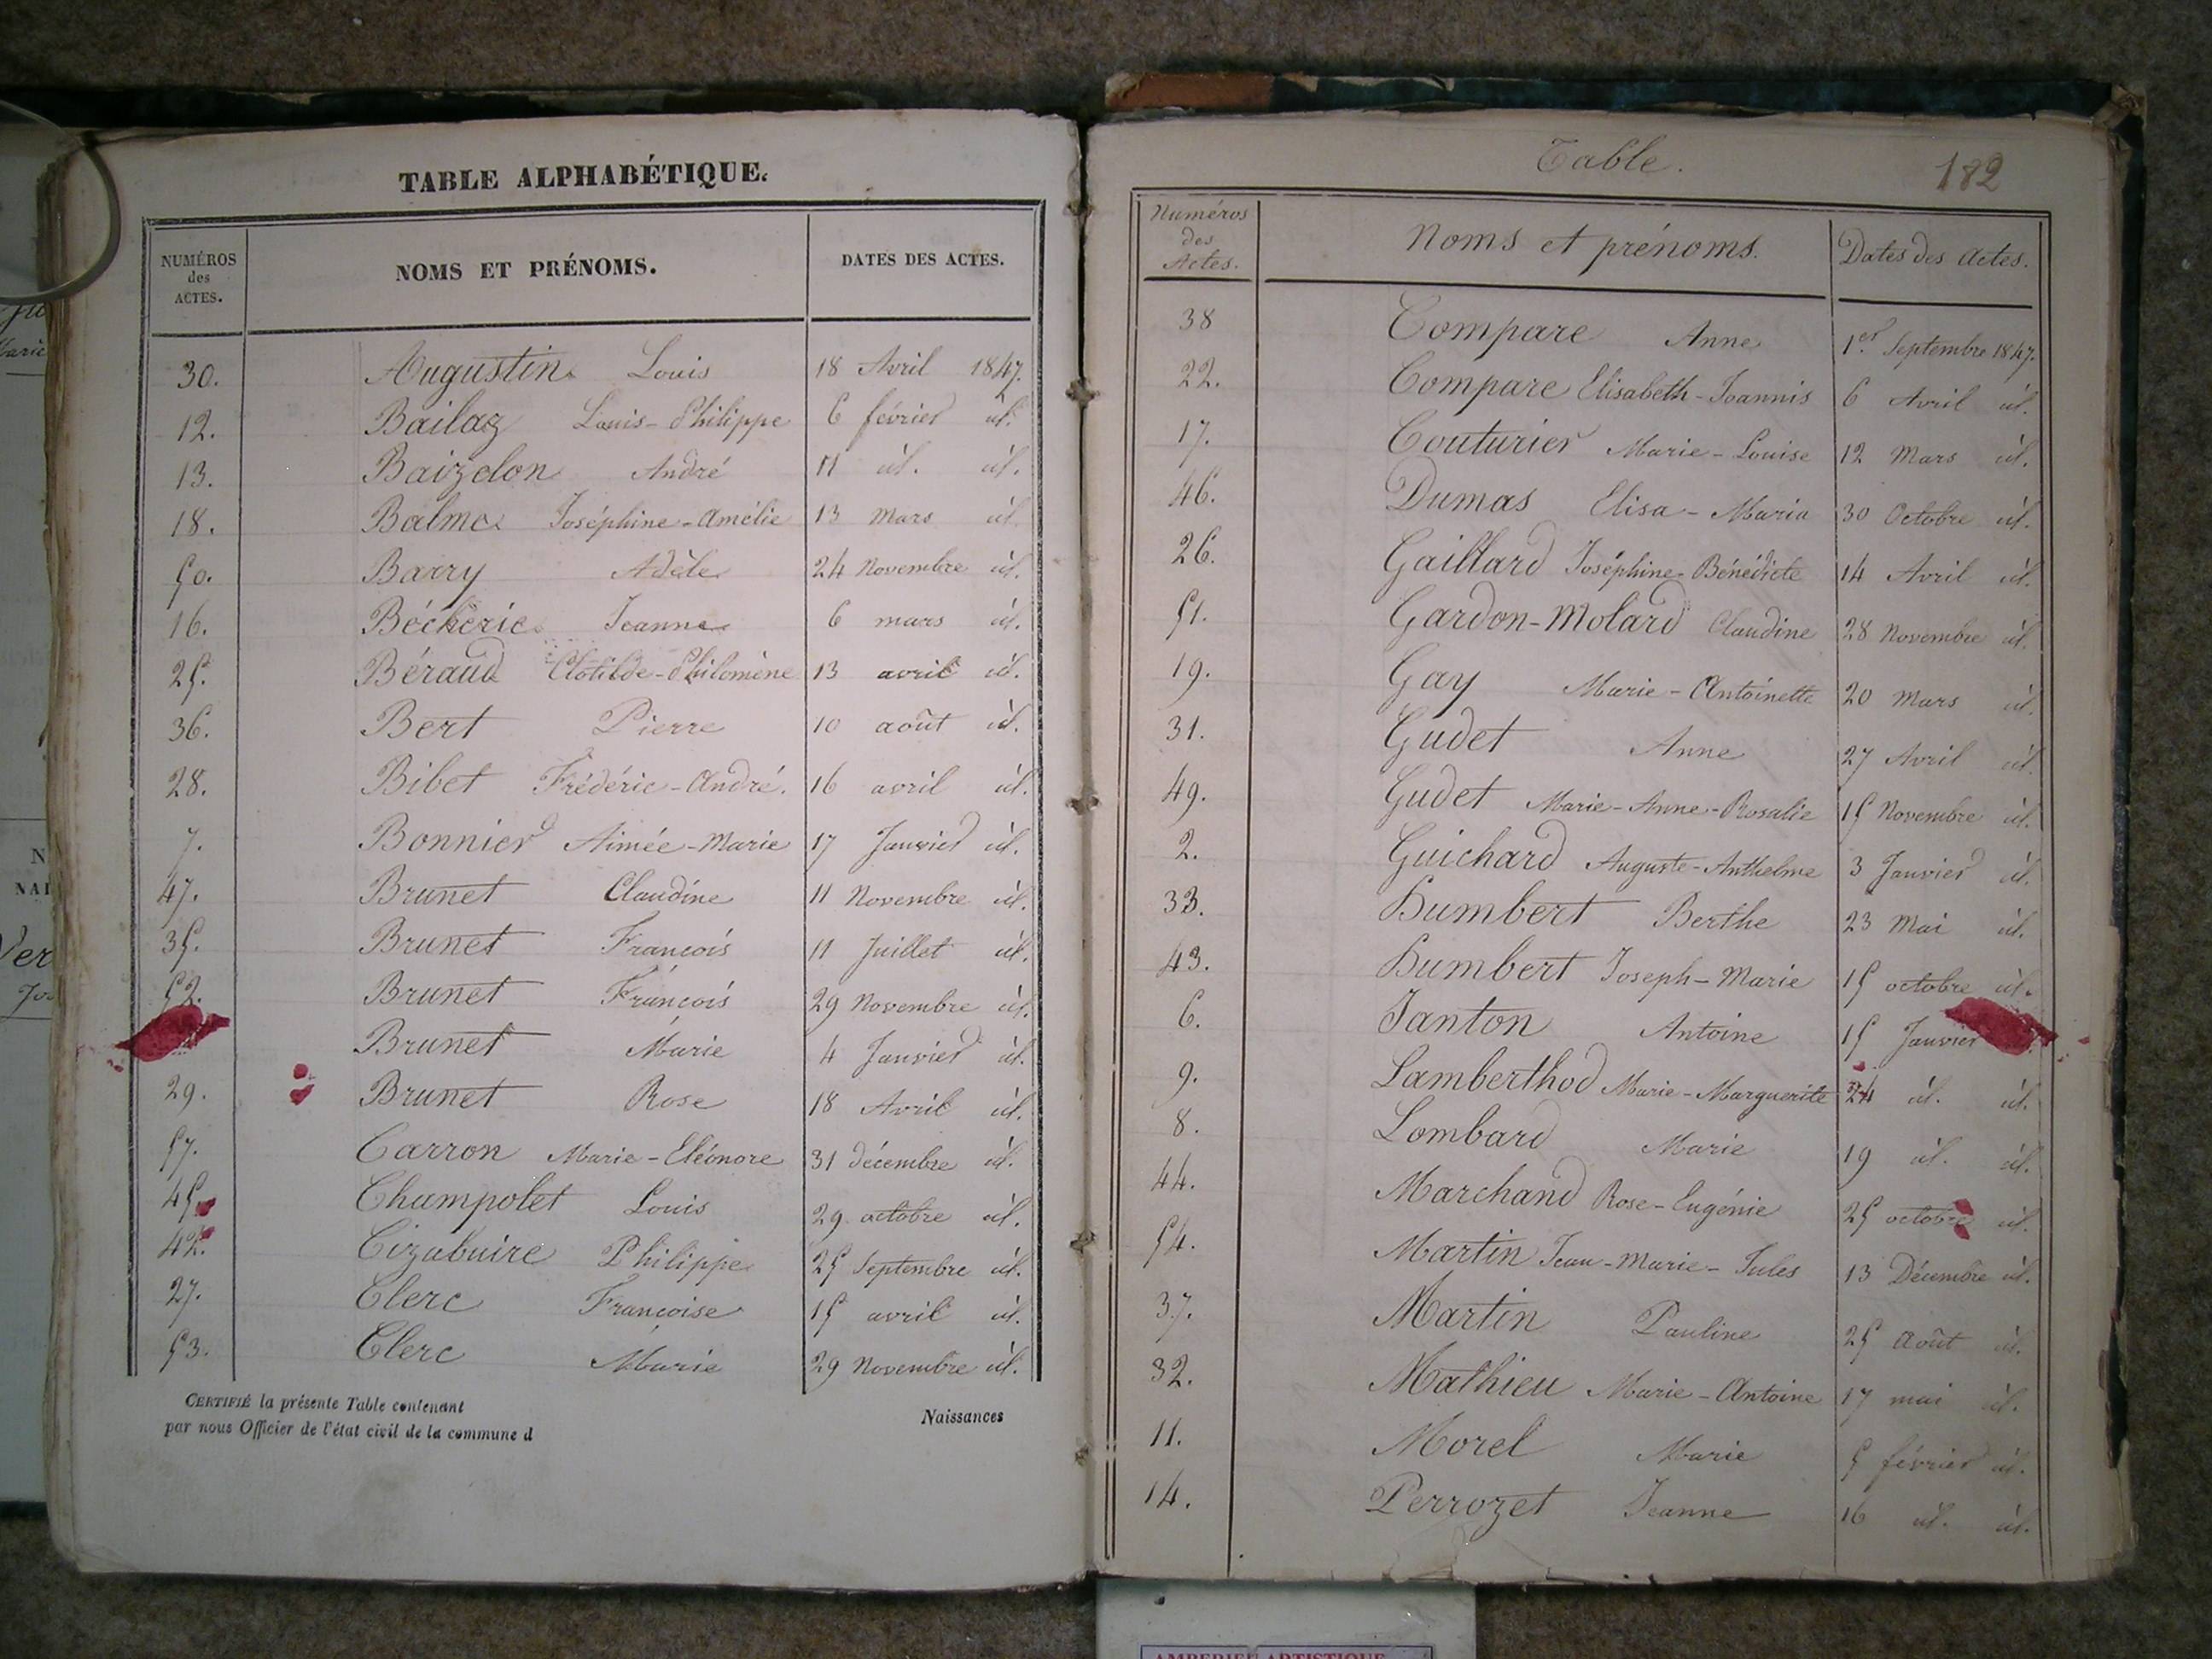 TABLE ALPHABÉTIQUE.
NUMÉROS
des
ACTES.
NOMS ET PRÉNOMS.
DATES DES ACTES.
30. Augustin Louis 18 Avril 1847.
12. Bailaz Louis-Philippe 6 février id.
13. Baizelon André 11 id. id.
18. Balme Joséphine-Amélie 13 Mars id.
50. Barry Adèle 24 Novembre id.
16. Béckérie Jeanne 6 mars id.
25. Béraud Clotilde-Philomène 13 avril id.
36. Bert Pierre 10 août id.
28. Bibet Frédéric-André. 16 avril id.
7. Bonnier Aimée-Marie 17 Janvier id.
47. Brunet Claudine 11 Novembre id.
35. Brunet François 11 Juillet id.
52. Brunet François 29 Novembre id.
Brunet Marie 4 Janvier id.
29. Brunet Rose 18 Avril id.
57. Carron Marie-Eléonore 31 décembre id.
45 Champolet Louis 29 octobre id.
42. Cizabuire Philippe 25 Septembre id.
27. Clerc Françoise 15 avril id.
53. Clerc Marie 29 Novembre id.
CERTIFIÉ la présente Table contenant Naissances
par nous Officier de l'état civil de la commune d
Table.
182
Numéros
des
Actes.
Noms et prénoms.
Dates des Actes.
38 Compare Anne 1er Septembre 1847.
22. Compare Elisabeth-Joannis 6 Avril id.
17. Couturier Marie-Louise 12 Mars id.
46. Dumas Elisa-Maria 30 Octobre id.
26. Gaillard Joséphine-Bénédicte 14 Avril id.
51. Gardon-Molard Claudine 28 Novembre id.
19. Gay Marie-Antoinette 20 Mars id.
31. Gudet Anne 27 Avril id.
49. Gudet Marie-Anne-Rosalie 15 Novembre id.
2. Guichard Auguste-Anthelme 3 Janvier id.
33. Humbert Berthe 23 Mai id.
43. Humbert Joseph-Marie 15 octobre id.
6. Janton Antoine 15 Janvier
9. Lamberthod Marie-Marguerite 24 id. id.
8. Lombard Marie 19 id. id.
44. Marchand Rose-Eugénie 25 octobre id.
54. Martin Jean-Marie-Jules 13 Décembre id.
37. Martin Pauline 25 Août id.
32. Mathieu Marie-Antoine 17 mai id.
11. Morel Marie 5 février id.
14. Perrozet Jeanne 16 id. id.
AMBERIEU ARTISTIQUE